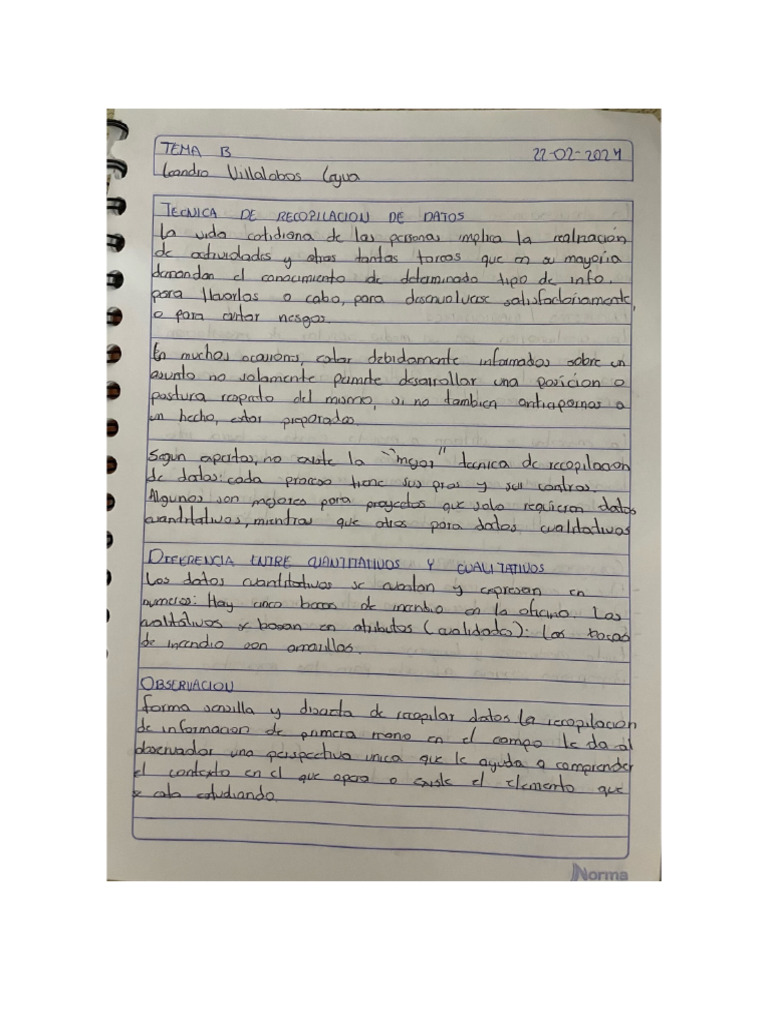 TEMA B 22-02-2024
Leandro Villalobos
TECNICA DE RECOPILACION DE DATOS
La vida cotidiana de las personas implica la realización
de actividades y otras tantas tareas que en su mayoria
demandan el conocimiento de determinado tipo de info.
para llevarlas a cabo, para desenvolverse satisfactoriamente,
o para evitar riesgos.
En muchas ocasiones, estar debidamente informados sobre un
asunto no solamente permite desarrollar una posicion o
postura respecto del mismo, si no tambien anticiparnos a
un hecho, estar preparados.
Segun expertos, no existe la "mejor" tecnica de recopilacion
de datos: cada proceso tiene sus pros y sus contras.
Algunos son mejores para proyectos que solo requieren datos
cuantitativos, mientras que otros para datos cualitativos
DIFERENCIA ENTRE CUANTITATIVOS Y CUALITATIVOS
Los datos cuantitativos se cuentan y expresan en
numeros: Hay cinco bocas de incendio en la oficina. Los
cualitativos se basan en atributos (cualidades): Las bocas
de incendio son amarillas.
OBSERVACION
forma sencilla y directa de recopilar datos la recopilacion
de informacion de primera mano en el campo le da al
observador una perspectiva unica que le ayuda a comprender
el contexto en el que opera o existe el elemento que
se esta estudiando.
Norma